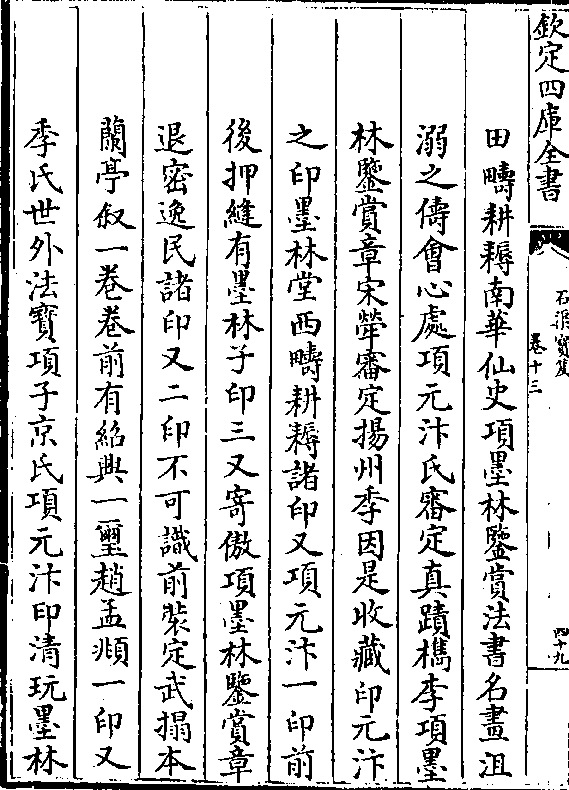 欽定四庫全書
石渠寶笈
卷十三
四十九
田疇耕耨南華仙史項墨林鑒賞法書名畫沮
溺之儔會心處項元汴氏審定真蹟檇李項墨
林鑒賞章宋犖審定揚州季因是收藏印元汴
之印墨林堂西疇耕耨諸印又項元汴一印前
後押縫有墨林子印三又寄傲項墨林鑒賞章
退密逸民諸印又二印不可識前裝定武搨本
蘭亭叙一卷卷前有紹興一璽趙孟頫一印又
季氏世外法寶項子京氏項元汴印清玩墨林